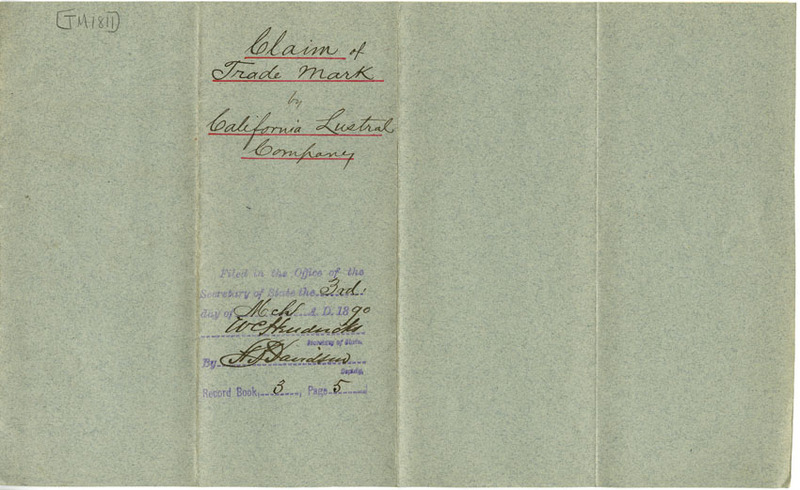 [TM1811]
Claim of
Trade Mark
by
California Lustral
Company
Filed in the Office of the
Secretary of State the 3rd
day of Mch A. D. 1890
W C Hendricks
Secretary of State.
By Davidson
Deputy.
Record Book, 3, Page 5